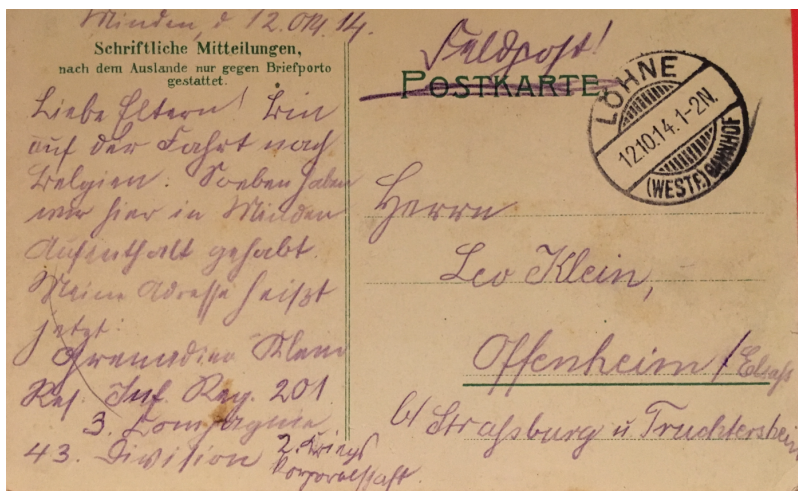 Minden, d 12. Okt. 14.
Schriftliche Mitteilungen,
nach dem Auslande nur gegen Briefporto
gestattet.
Liebe Eltern! Bin
auf der Fahrt nach
Belgien. Soeben haben
wir hier in Minden
Aufenthalt gehabt.
Meine Adresse heißt
jetzt:
Grenadier Klein
Res. Inf. Reg. 201
3. Kompagnie
43. Division 2. Kriegs
korporalschaft.
Feldpost!
POSTKARTE
LÖHNE
12.10.14.1-2N.
(WESTF.) BAHNHOF
Herrn
Leo Klein,
Offenheim / Elsaß
b/ Straßburg u Truchtersheim